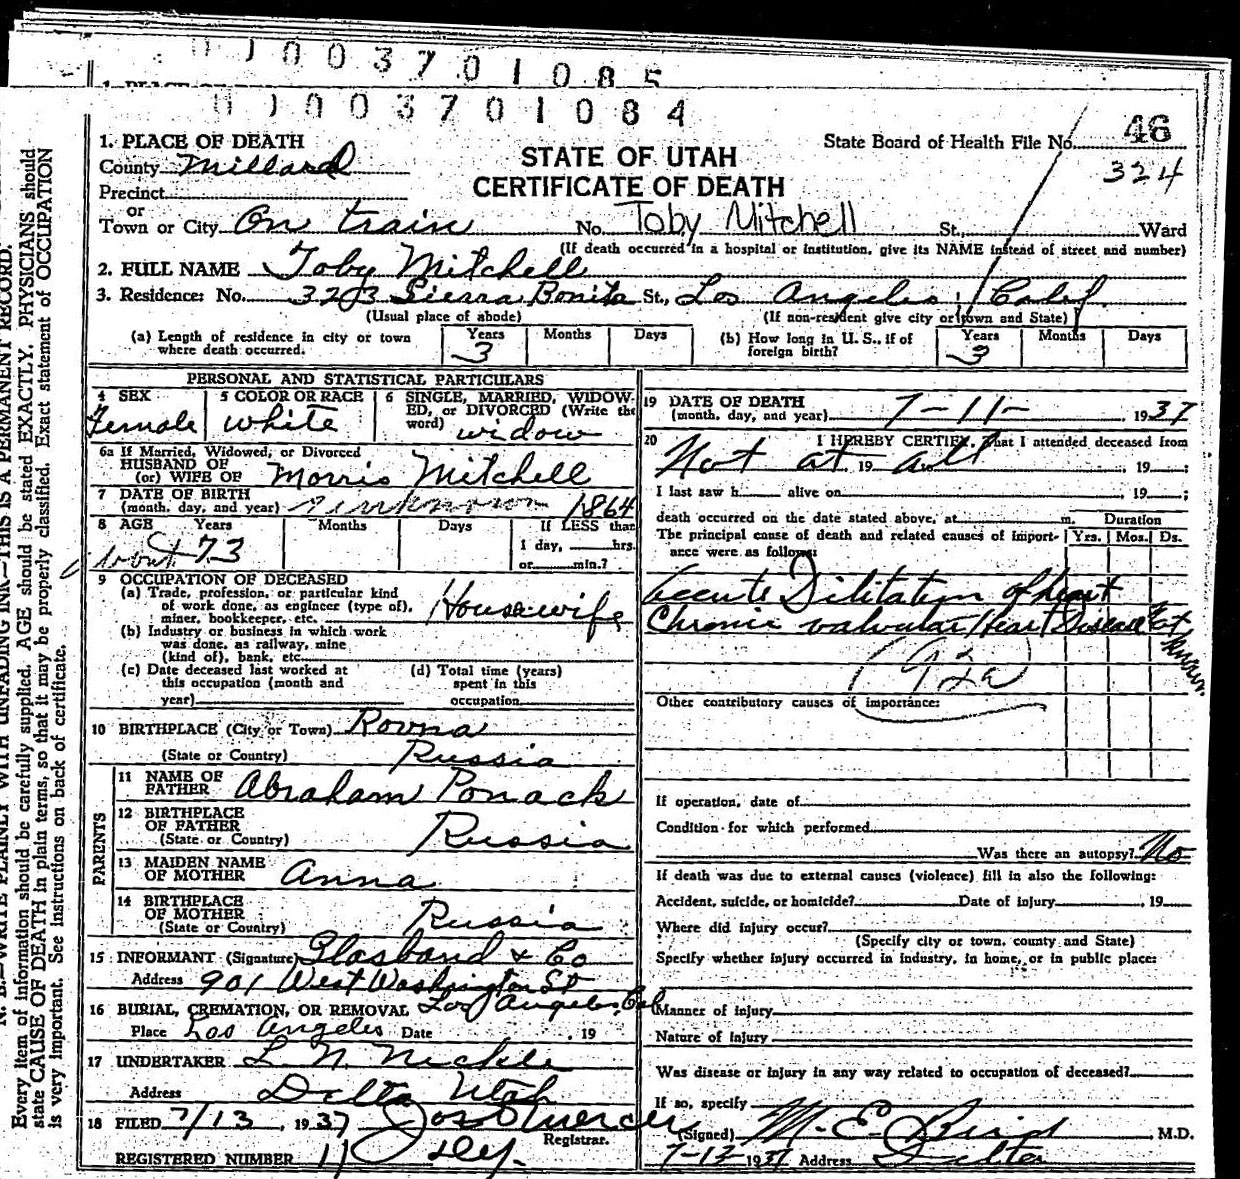 0003701085
0003701084
1. PLACE OF DEATH
County Millard
Precinct
or
Town or City On train No. Toby Mitchell St. Ward
STATE OF UTAH
CERTIFICATE OF DEATH
State Board of Health File No. 46
324
(If death occurred in a hospital or institution, give its NAME instead of street and number)
2. FULL NAME Toby Mitchell
3. Residence: No. 3203 Sierra Bonita St., Los Angeles, Calif.
(Usual place of abode) (If non-resident give city or town and State)
(a) Length of residence in city or town where death occurred. Years 3 Months Days
(b) How long in U. S., if of foreign birth? Years 3 Months Days
PERSONAL AND STATISTICAL PARTICULARS
4 SEX Female
5 COLOR OR RACE white
6 SINGLE, MARRIED, WIDOWED, or DIVORCED (Write the word) widow
6a If Married, Widowed, or Divorced
HUSBAND OF
(or) WIFE OF Morris Mitchell
7 DATE OF BIRTH
(month, day, and year) unknown 1864
8 AGE Years Months Days If LESS than
about 73 1 day, hrs.
or min.?
9 OCCUPATION OF DECEASED
(a) Trade, profession, or particular kind
of work done, as engineer (type of),
miner, bookkeeper, etc. Housewife
(b) Industry or business in which work
was done, as railway, mine
(kind of), bank, etc.
(c) Date deceased last worked at
this occupation (month and
year)
(d) Total time (years)
spent in this
occupation
10 BIRTHPLACE (City or Town) Rovna
(State or Country) Russia
PARENTS
11 NAME OF
FATHER Abraham Ponack
12 BIRTHPLACE
OF FATHER
(State or Country) Russia
13 MAIDEN NAME
OF MOTHER Anna
14 BIRTHPLACE
OF MOTHER
(State or Country) Russia
15 INFORMANT (Signature) Glasband & Co
Address 901 West Washington St
16 BURIAL, CREMATION, OR REMOVAL Los Angeles, Cal
Place Los Angeles Date , 19
17 UNDERTAKER L. N. Nickle
Address Delta Utah
18 FILED 7/13, 1937
Registrar.
REGISTERED NUMBER 11
19 DATE OF DEATH
(month, day, and year) 7-11- 1937
20 I HEREBY CERTIFY, That I attended deceased from
Not at 19 all , 19 ;
I last saw h alive on , 19 ;
death occurred on the date stated above, at m. Duration
The principal cause of death and related causes of importance were as follows: Yrs. Mos. Ds.
Accute Dilitation of heart
Chronic valvular Heart Disease Not
known
(92a)
Other contributory causes of importance:
If operation, date of
Condition for which performed
Was there an autopsy? No
If death was due to external causes (violence) fill in also the following:
Accident, suicide, or homicide? Date of injury , 19
Where did injury occur?
(Specify city or town, county and State)
Specify whether injury occurred in industry, in home, or in public place:
Manner of injury
Nature of injury
Was disease or injury in any way related to occupation of deceased?
If so, specify
(Signed) M. E. Bird M.D.
7-13-1937 Address Delta
N. B.—WRITE PLAINLY WITH UNFADING INK—THIS IS A PERMANENT RECORD.
Every item of information should be carefully supplied. AGE should be stated EXACTLY. PHYSICIANS should
state CAUSE OF DEATH in plain terms, so that it may be properly classified. Exact statement of OCCUPATION
is very important. See instructions on back of certificate.